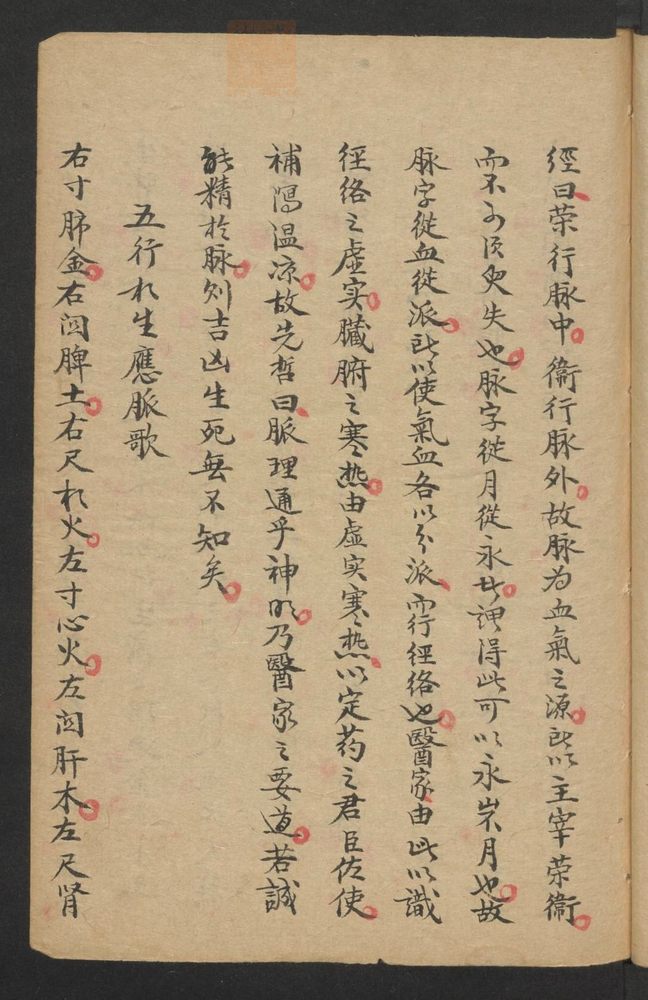 經曰荣行脉中衛行脉外故脉为血氣之源所以主宰荣衛
而不可须臾失也脉字從月從永此謂得此可以永岁月也故
脉字從血從派所以使氣血各以分派而行徑絡也醫家由此以識
徑絡之虛实臟腑之寒热由虛实寒热以定药之君臣佐使
補瀉温凉故先哲曰脈理通乎神明乃醫家之要道若誠
能精於脉则吉凶生死無不知矣
五行相生應脈歌
右寸肺金右関脾土右尺相火左寸心火左関肝木左尺肾